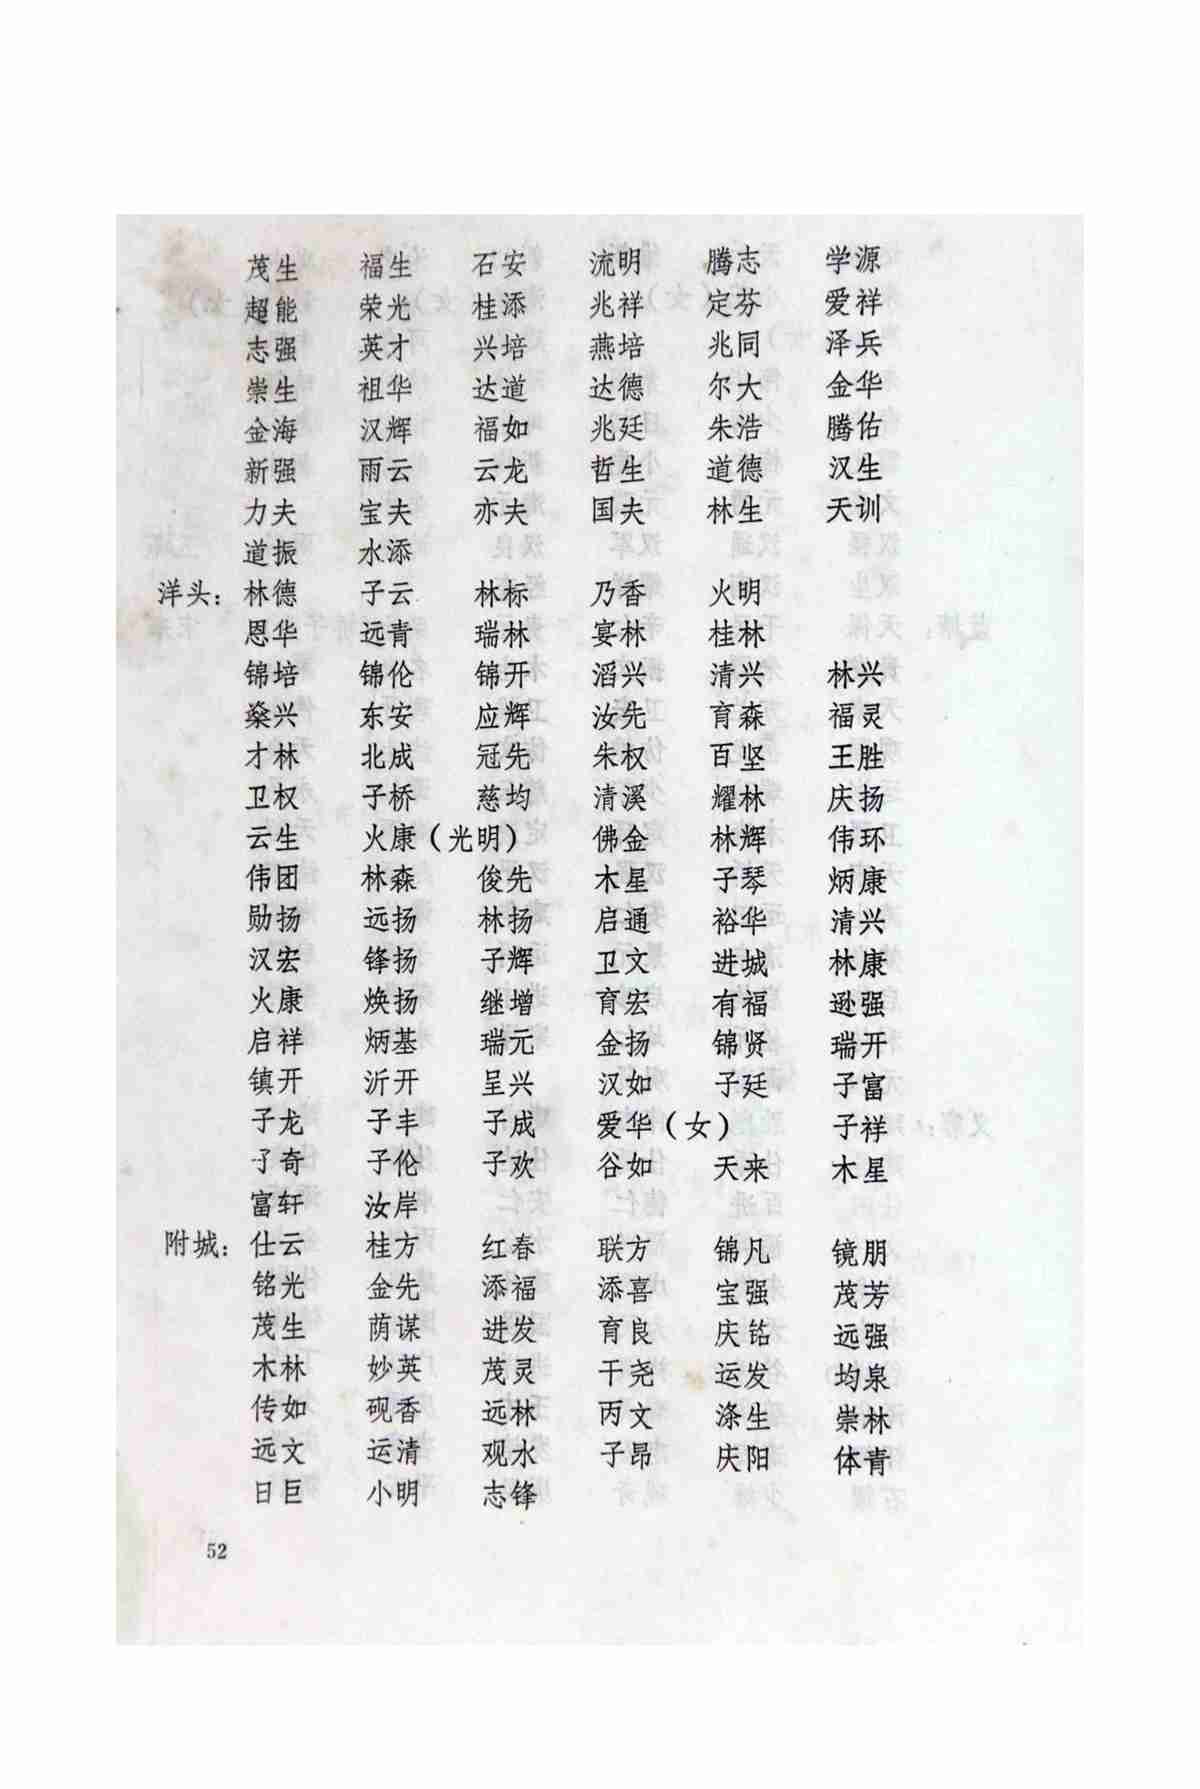 茂生 福生 石安 流明 腾志 学源
超能 荣光 桂添 兆祥 定芬 爱祥
志强 英才 兴培 燕培 兆同 泽兵
崇生 祖华 达道 达德 尔大 金华
金海 汉辉 福如 兆廷 朱浩 腾佑
新强 雨云 云龙 哲生 道德 汉生
力夫 宝夫 亦夫 国夫 林生 天训
道振 水添
洋头：林德 子云 林标 乃香 火明
恩华 远青 瑞林 宴林 桂林
锦培 锦伦 锦开 滔兴 清兴 林兴
燊兴 东安 应辉 汝先 育森 福灵
才林 北成 冠先 朱权 百坚 王胜
卫权 子桥 慈均 清溪 耀林 庆扬
云生 火康（光明） 佛金 林辉 伟环
伟团 林森 俊先 木星 子琴 炳康
勋扬 远扬 林扬 启通 裕华 清兴
汉宏 锋扬 子辉 卫文 进城 林康
火康 焕扬 继增 育宏 有福 逊强
启祥 炳基 瑞元 金扬 锦贤 瑞开
镇开 沂开 呈兴 汉如 子廷 子富
子龙 子丰 子成 爱华（女） 子祥
子奇 子伦 子欢 谷如 天来 木星
富轩 汝岸
附城：仕云 桂方 红春 联方 锦凡 镜朋
铭光 金先 添福 添喜 宝强 茂芳
茂生 荫谋 进发 育良 庆铭 远强
木林 妙英 茂灵 干尧 运发 均泉
传如 砚香 远林 丙文 涤生 崇林
远文 运清 观水 子昂 庆阳 体青
日巨 小明 志锋
52